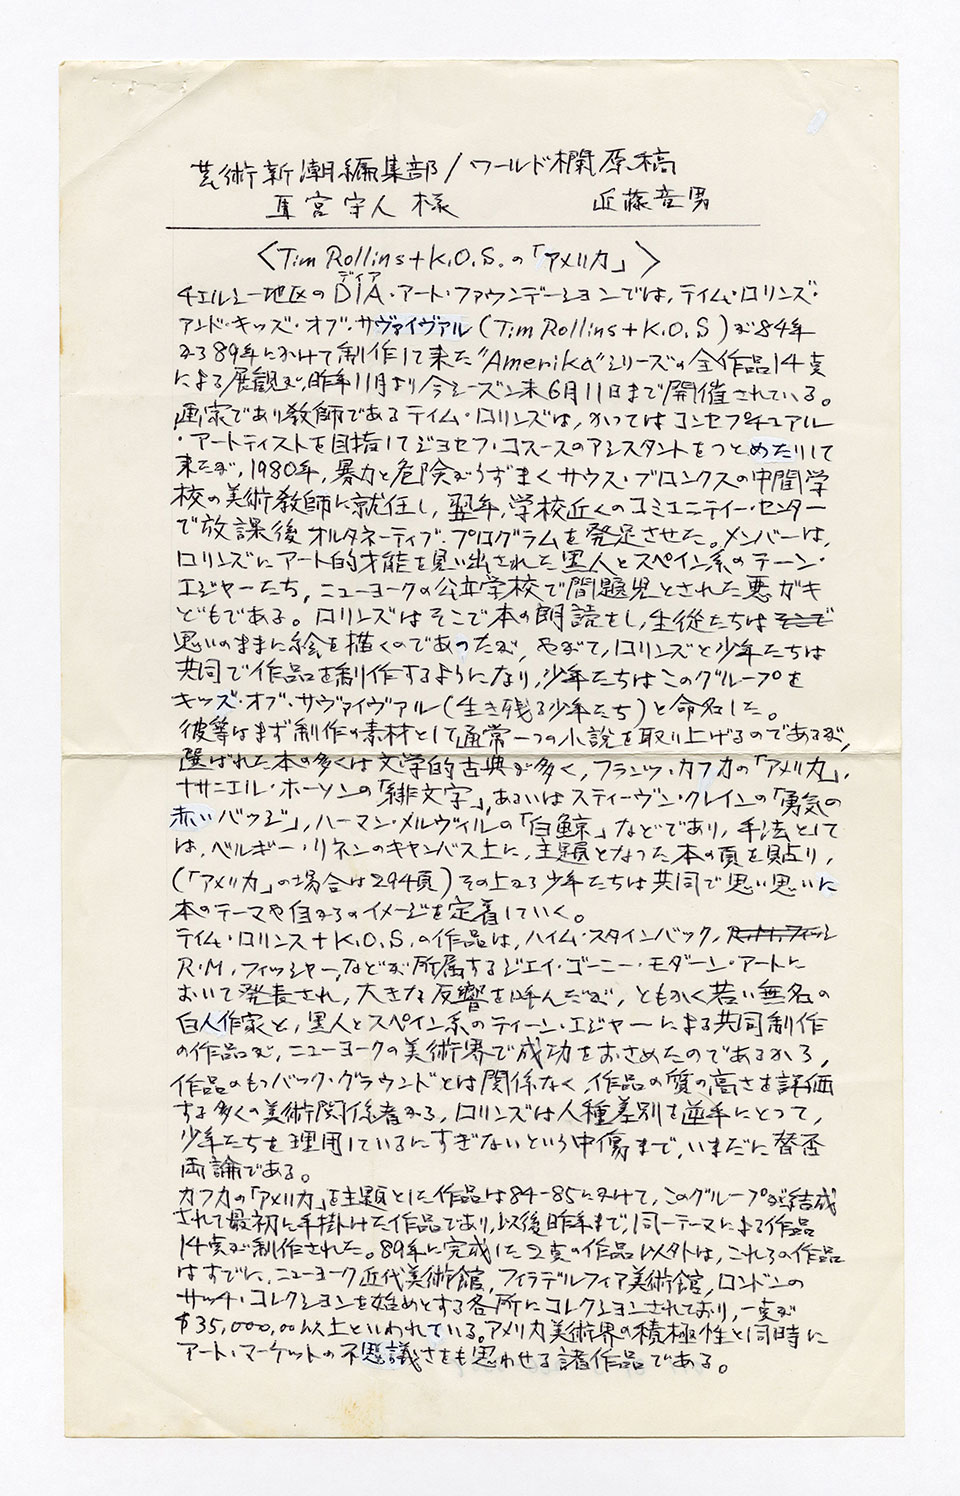 芸術新潮編集部/ワールド欄原稿
宮守人様 近藤竜男
〈Tim Rollins + K.O.S. の「アメリカ」〉
ディア
チェルシー地区のDIA・アート・ファウンデーションでは、ティム・ロリンズ・
アンド・キッズ・オブ・サヴァイヴァル (Tim Rollins + K.O.S) が84年
から89年にかけて制作して来た"Amerika"シリーズの全作品14点
による展観が、昨年11月より今シーズン末6月11日まで開催されている。
画家であり教師であるティム・ロリンズは、かつてはコンセプチュアル
・アーティストを目指してジョセフ・コスースのアシスタントをつとめたりして
来たが、1980年、暴力と危険がうずまくサウス・ブロンクスの中間学
校の美術教師に就任し、翌年、学校近くのコミュニティー・センター
で放課後オルタネーティブ・プログラムを発足させた。メンバーは、
ロリンズにアート的才能を見い出された黒人とスペイン系のテーン・
エジャーたち、ニューヨークの公立学校で問題児とされた悪ガキ
どもである。ロリンズはそこで本の朗読をし、生徒たちはそこで
思いのままに絵を描くのであったが、やがて、ロリンズと少年たちは
共同で作品を制作するようになり、少年たちはこのグループを
キッズ・オブ・サヴァイヴァル (生き残る少年たち) と命名した。
彼等はまず制作の素材として通常一つの小説を取り上げるのであるが、
選ばれた本の多くは文学的古典が多く、フランツ・カフカの「アメリカ」、
ナサニエル・ホーソンの「緋文字」、あるいはスティーヴン・クレインの「勇気の
赤いバッジ」、ハーマン・メルヴィルの「白鯨」などであり、手法として
は、ベルギー・リネンのキャンバス上に、主題となった本の頁を貼り、
(「アメリカ」の場合は294頁) その上から少年たちは共同で思い思いに
本のテーマや自からのイメージを定着していく。
ティム・ロリンス + K.O.S. の作品は、ハイム・スタインバック、R.M.フィッシ
R・M・フィッシャー、などが所属するジェイ・ゴーニー・モダーン・アートに
おいて発表され、大きな反響を呼んだが、ともかく若い無名の
白人作家と、黒人とスペイン系のティーン・エジャーによる共同制作
の作品が、ニューヨークの美術界で成功をおさめたのであるから、
作品のもつバック・グラウンドとは関係なく、作品の質の高さを評価
する多くの美術関係者から、ロリンズは人種差別を逆手にとって、
少年たちを理用しているにすぎないという中傷まで、いまだに賛否
両論である。
カフカの「アメリカ」を主題とした作品は84-85にかけて、このグループが結成
されて最初に手掛けた作品であり、以後昨年まで、同一テーマによる作品
14点が制作された。89年に完成した2点の作品以外は、これらの作品
はすでに、ニューヨーク近代美術館、フィラデルフィア美術館、ロンドンの
サッチ・コレクションを始めとする各所にコレクションされており、一点が
$35,000,00以上といわれている。アメリカ美術界の積極性と同時に
アート・マーケットの不思議さをも思わせる諸作品である。